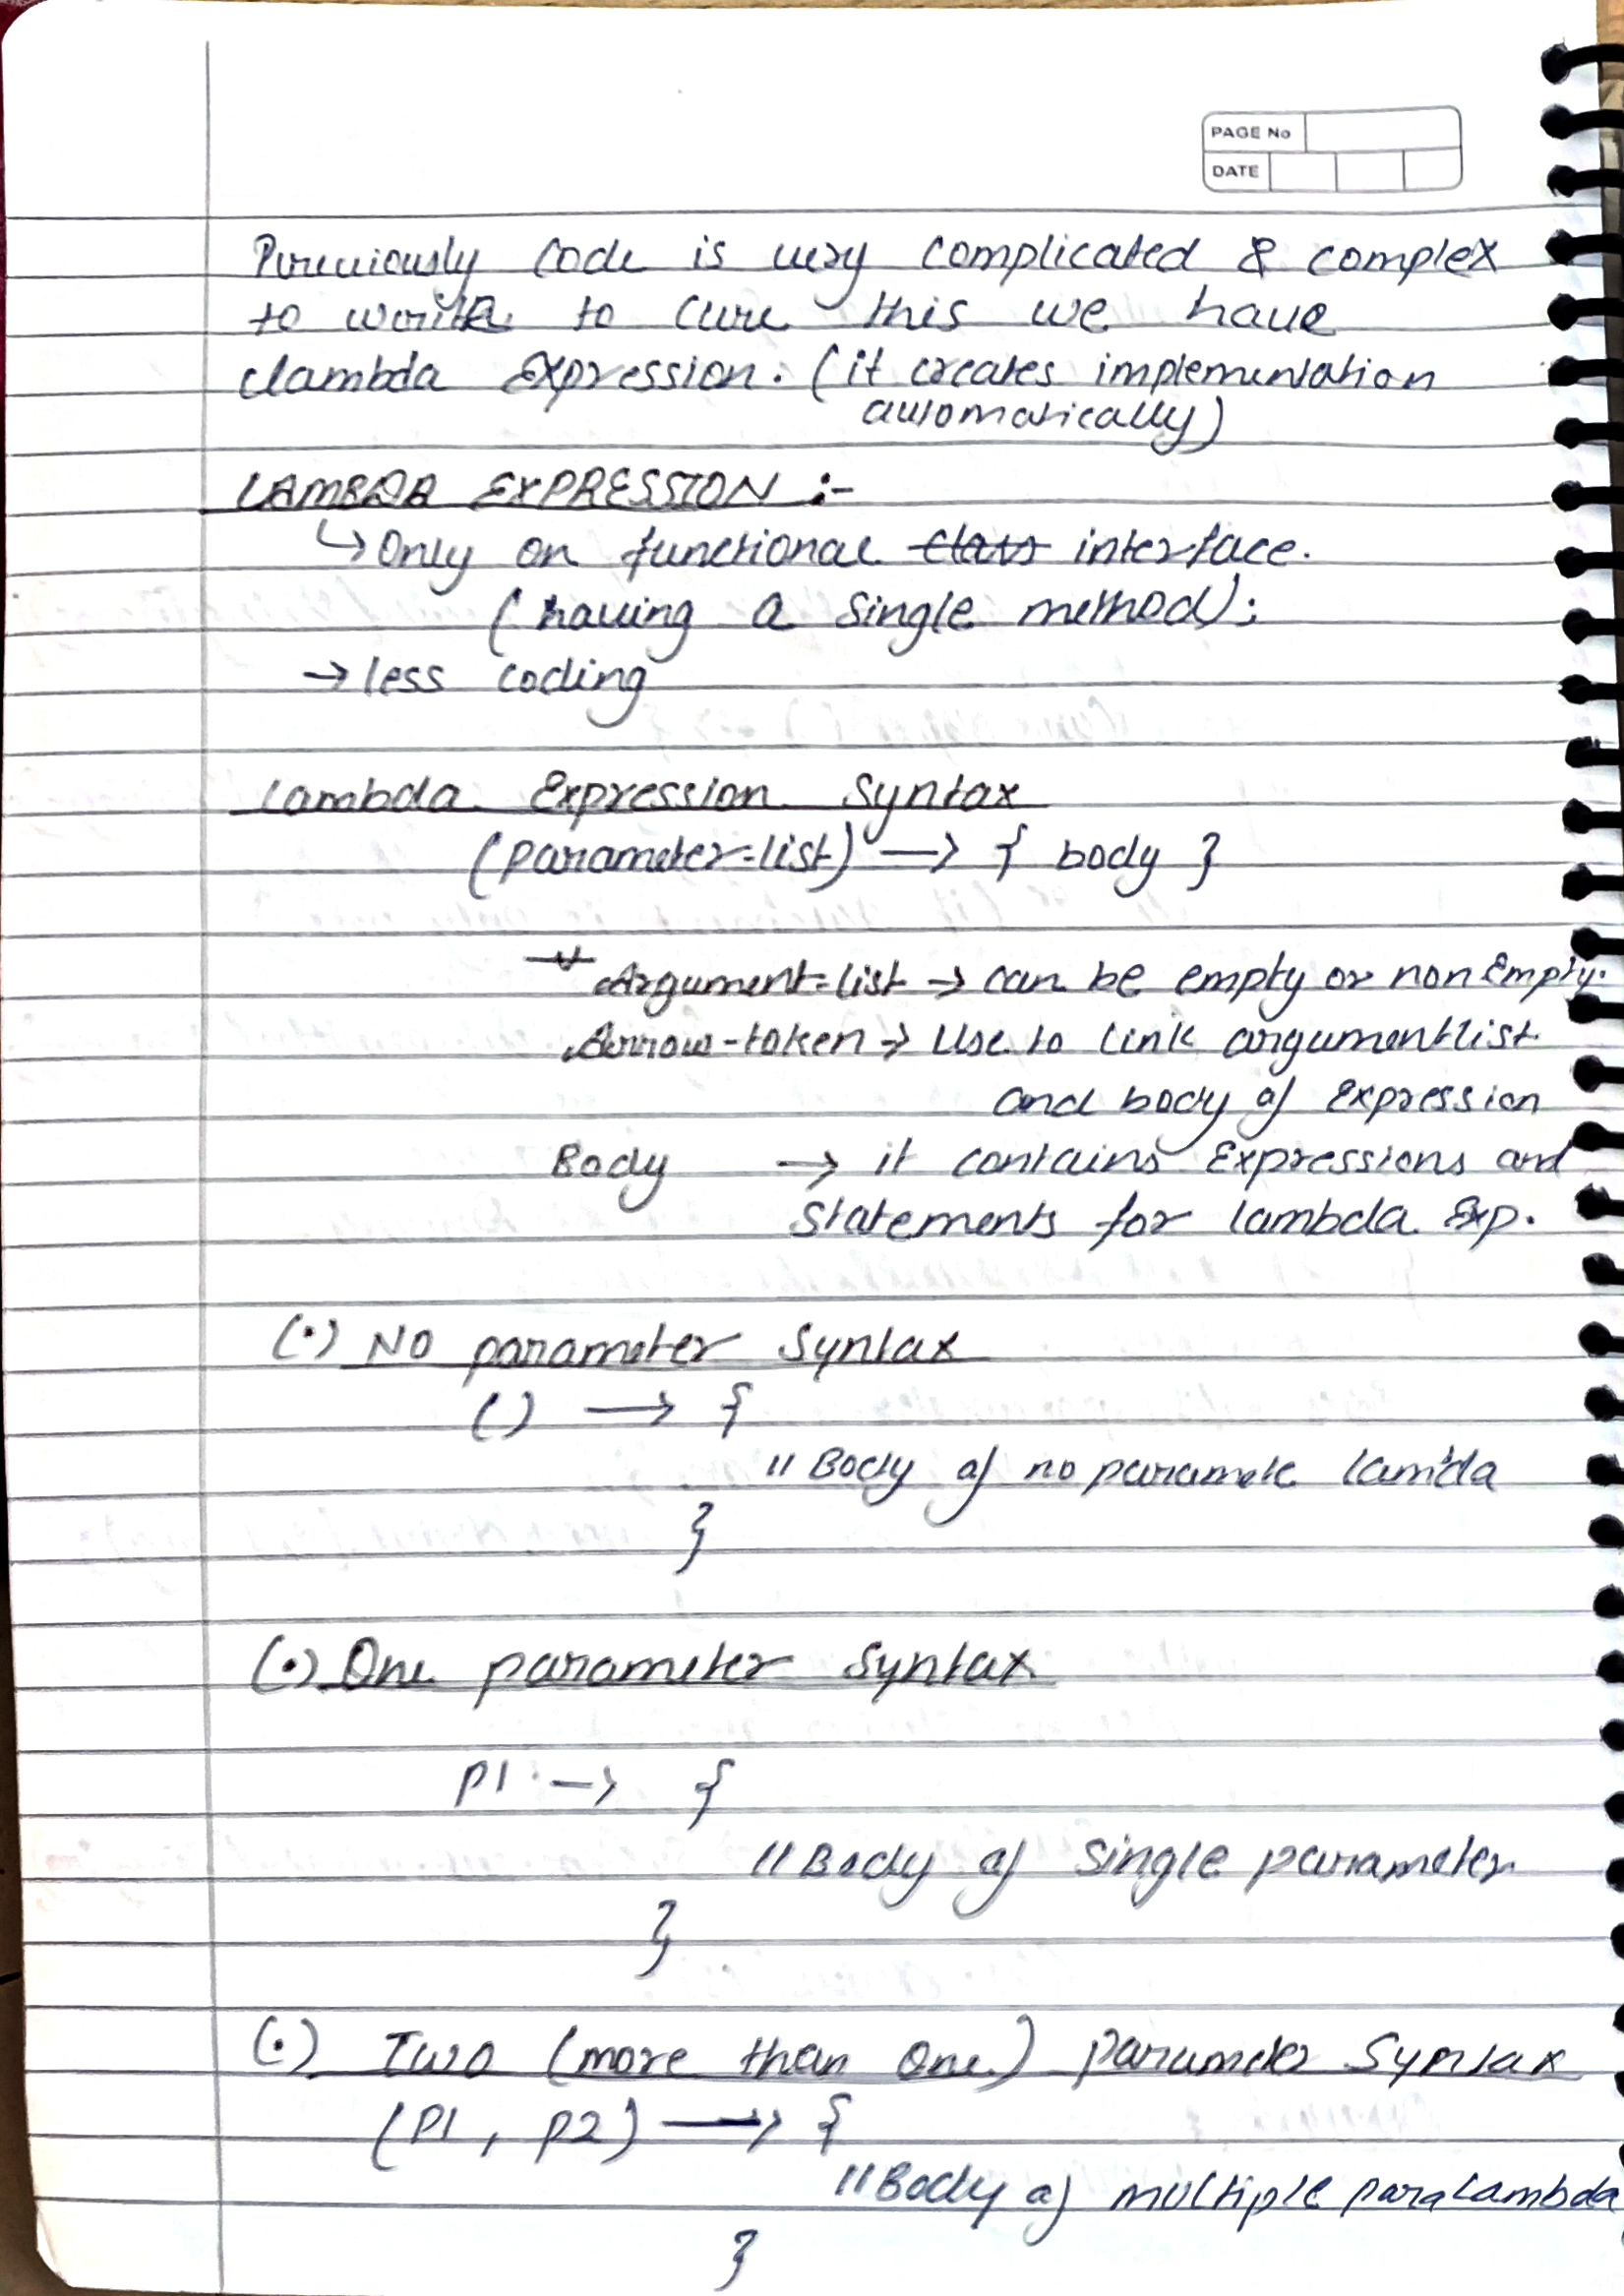 PAGE No
DATE
Previously code is very complicated & complex
to write to cure this we have
lambda Expression. (it creates implementation
automatically)
LAMBDA EXPRESSION :-
↳ Only on functional class interface.
(having a single method);
→ less coding
Lambda Expression Syntax
(parameter-list) → { body }
* Argument-list → can be empty or non Empty.
Arrow-token → Use to link argumentlist
and body of Expression
Body → it contains Expressions and
Statements for lambda Exp.
(•) NO parameter Syntax
() → {
// Body of no paramete lambda
}
(•) One parameter Syntax
p1 → {
// Body of Single parameter
}
(•) Two (more than One) parameter Syntax
(P1, P2) → {
// Body of multiple para Lambda
}